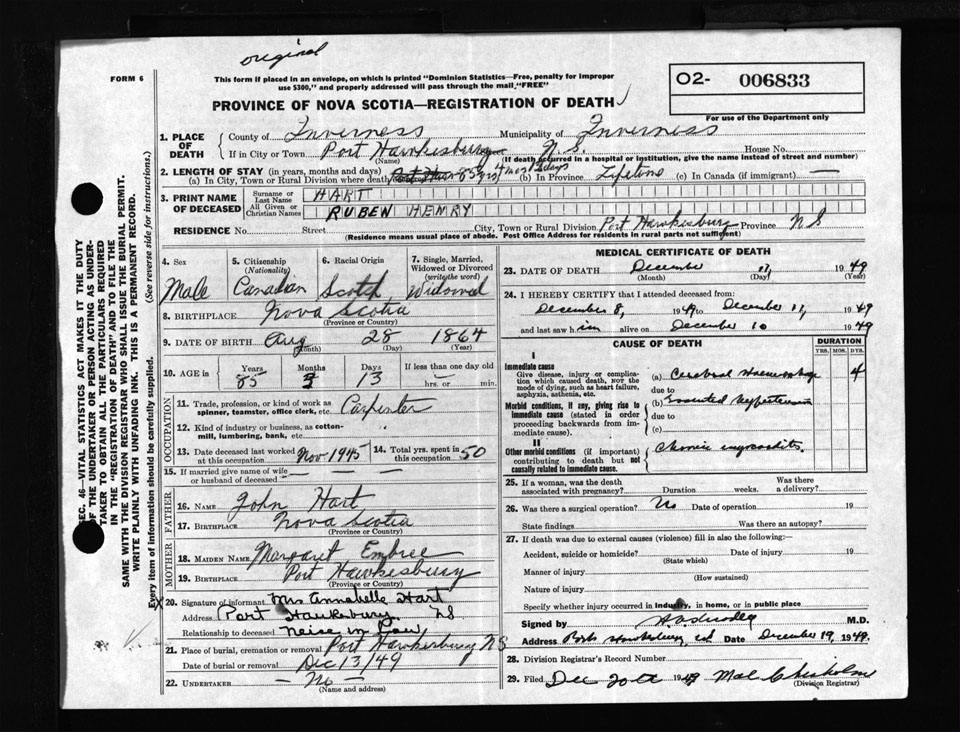 original
FORM 6
This form if placed in an envelope, on which is printed "Dominion Statistics—Free, penalty for improper
use $300," and properly addressed will pass through the mail "FREE"
O2- 006833
For use of the Department only
PROVINCE OF NOVA SCOTIA—REGISTRATION OF DEATH
1. PLACE OF DEATH
County of Inverness Municipality of Inverness
If in City or Town Port Hawkesbury N.S. House No.
(Name) (If death occurred in a hospital or institution, give the name instead of street and number)
2. LENGTH OF STAY (in years, months and days)
(a) In City, Town or Rural Division where death 85 yrs (b) In Province Lifetime (c) In Canada (if immigrant) —
3. PRINT NAME OF DECEASED
Surname or Last Name HART
All Given or Christian Names RUBEN HENRY
RESIDENCE No. Street City, Town or Rural Division Port Hawkesbury Province N S
(Residence means usual place of abode. Post Office Address for residents in rural parts not sufficient)
4. Sex Male
5. Citizenship (Nationality) Canadian
6. Racial Origin Scotch
7. Single, Married, Widowed or Divorced (write the word) Widowed
8. BIRTHPLACE Nova Scotia
(Province or Country)
9. DATE OF BIRTH Aug 28 1864
(Month) (Day) (Year)
10. AGE in Years 85 Months Days 13 If less than one day old hrs. or min.
OCCUPATION
11. Trade, profession, or kind of work as spinner, teamster, office clerk, etc. Carpenter
12. Kind of industry or business, as cotton-mill, lumbering, bank, etc.
13. Date deceased last worked at this occupation Nov 1945
14. Total yrs. spent in this occupation 50
15. If married give name of wife or husband of deceased —
FATHER
16. NAME John Hart
17. BIRTHPLACE Nova Scotia
(Province or Country)
MOTHER
18. MAIDEN NAME Margaret Embree
19. BIRTHPLACE Port Hawkesbury
(Province or Country)
X 20. Signature of informant Mrs Annabelle Hart
Address Port Hawkesbury NS
Relationship to deceased Neice in Law
21. Place of burial, cremation or removal Port Hawkesbury N S
Date of burial or removal Dec 13/49
22. UNDERTAKER — No —
(Name and address)
MEDICAL CERTIFICATE OF DEATH
23. DATE OF DEATH December 11 1949
(Month) (Day) (Year)
24. I HEREBY CERTIFY that I attended deceased from:
December 8, 1949 to December 11, 1949
and last saw him alive on December 10 1949
CAUSE OF DEATH
DURATION
YRS. MOS. DYS.
I
Immediate cause
Give disease, injury or complication which caused death, NOT the mode of dying, such as heart failure, asphyxia, asthenia, etc.
(a) Cerebral Haemorrhage 4
due to
Morbid conditions, if any, giving rise to immediate cause (stated in order proceeding backwards from immediate cause).
(b) Essential hypertension
due to
(c)
II
Other morbid conditions (if important) contributing to death but not causally related to immediate cause.
Chronic myocarditis.
25. If a woman, was the death associated with pregnancy? Duration weeks. Was there a delivery?
26. Was there a surgical operation? No Date of operation 19
State findings Was there an autopsy?
27. If death was due to external causes (violence) fill in also the following:—
Accident, suicide or homicide? Date of injury 19
(State which)
Manner of injury
(How sustained)
Nature of injury
Specify whether injury occurred in industry, in home, or in public place
Signed by M.D.
Address Port Hawkesbury Date December 19, 1949.
28. Division Registrar's Record Number
29. Filed Dec 20th 1949 Mal Chisholm
(Division Registrar)
SEC. 46—VITAL STATISTICS ACT MAKES IT THE DUTY
OF THE UNDERTAKER OR PERSON ACTING AS UNDER-
TAKER TO OBTAIN ALL THE PARTICULARS REQUIRED
IN THE "REGISTRATION OF DEATH" AND TO FILE THE
SAME WITH THE DIVISION REGISTRAR WHO SHALL ISSUE THE BURIAL PERMIT.
WRITE PLAINLY WITH UNFADING INK. THIS IS A PERMANENT RECORD.
Every item of information should be carefully supplied. (See reverse side for instructions.)